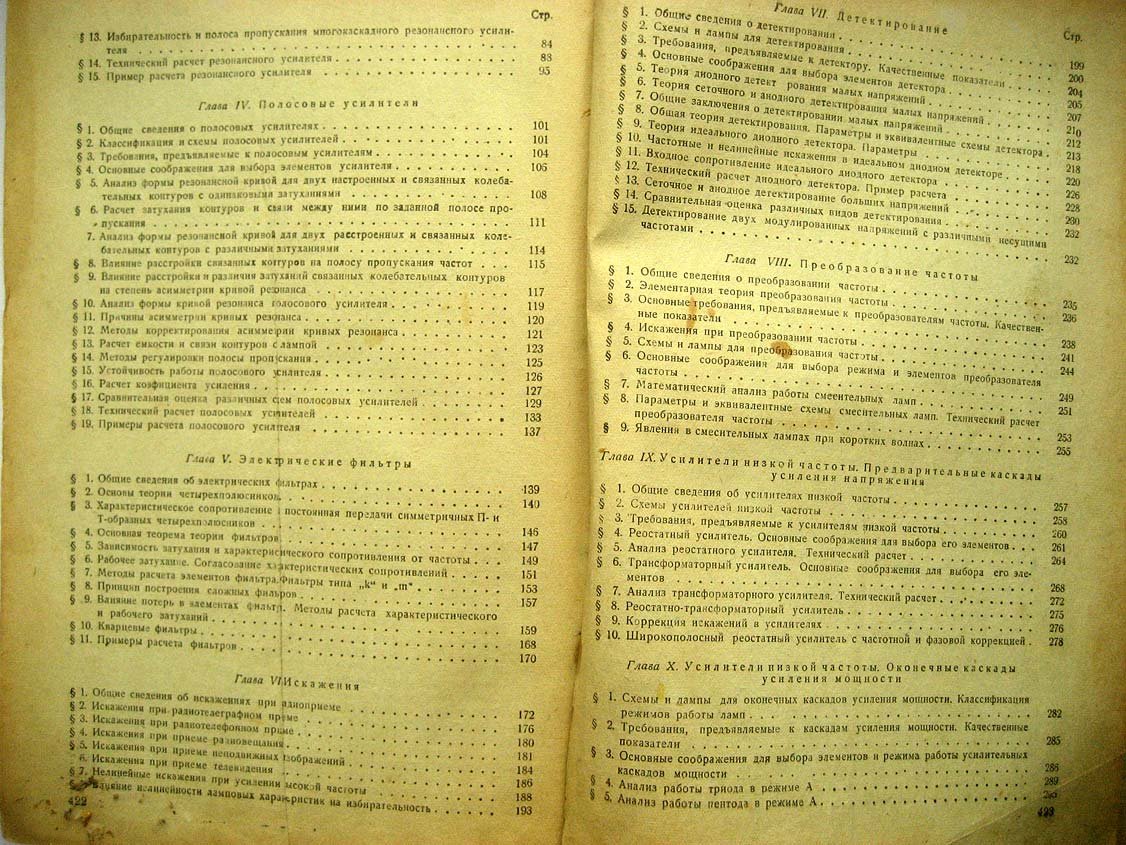 Стр.
§ 13. Избирательность и полоса пропускания многокаскадного резонансного усили-
теля 84
§ 14. Технический расчет резонансного усилителя 88
§ 15. Пример расчета резонансного усилителя 95
Глава IV. Полосовые усилители
§ 1. Общие сведения о полосовых усилителях 101
§ 2. Классификация и схемы полосовых усилителей 101
§ 3. Требования, предъявляемые к полосовым усилителям 104
§ 4. Основные соображения для выбора элементов усилителя 106
§ 5. Анализ формы резонансной кривой для двух настроенных и связанных колеба-
тельных контуров с одинаковыми затуханиями 108
§ 6. Расчет затухания контуров и связи между ними по заданной полосе про-
пускания 111
7. Анализ формы резонансной кривой для двух расстроенных и связанных коле-
бательных контуров с различными затуханиями 114
§ 8. Влияние расстройки связанных контуров на полосу пропускания частот 115
§ 9. Влияние расстройки и различия затуханий связанных колебательных контуров
на степень асимметрии кривой резонанса 117
§ 10. Анализ формы кривой резонанса полосового усилителя 119
§ 11. Причины асимметрии кривых резонанса 120
§ 12. Методы корректирования асимметрии кривых резонанса 121
§ 13. Расчет емкости и связи контуров с лампой 123
§ 14. Методы регулировки полосы пропускания 125
§ 15. Устойчивость работы полосового усилителя 126
§ 16. Расчет коэфициента усиления 127
§ 17. Сравнительная оценка различных схем полосовых усилителей 129
§ 18. Технический расчет полосовых усилителей 133
§ 19. Примеры расчета полосового усилителя 137
Глава V. Электрические фильтры
§ 1. Общие сведения об электрических фильтрах 139
§ 2. Основы теории четырехполюсников 140
§ 3. Характеристическое сопротивление и постоянная передачи симметричных П- и
Т-образных четырехполюсников 146
§ 4. Основная теорема теории фильтров 147
§ 5. Зависимость затухания и характеристического сопротивления от частоты 149
§ 6. Рабочее затухание. Согласование характеристических сопротивлений 151
§ 7. Методы расчета элементов фильтра. Фильтры типа „k“ и „m“ 153
§ 8. Принцип построения сложных фильтров 157
§ 9. Влияние потерь в элементах фильтра. Методы расчета характеристического
и рабочего затуханий 159
§ 10. Кварцевые фильтры 168
§ 11. Примеры расчета фильтров 170
Глава VI. Искажения
§ 1. Общие сведения об искажениях при радиоприеме 172
§ 2. Искажения при радиотелеграфном приеме 176
§ 3. Искажения при радиотелефонном приеме 180
§ 4. Искажения при приеме радиовещания 181
§ 5. Искажения при приеме неподвижных изображений 184
6. Искажения при приеме телевидения 186
§ 7. Нелинейные искажения при усилении высокой частоты 188
Влияние нелинейности ламповых характеристик на избирательность 193
422
Глава VII. Детектирование
Стр.
§ 1. Общие сведения о детектировании 199
§ 2. Схемы и лампы для детектирования 200
§ 3. Требования, предъявляемые к детектору. Качественные показатели 204
§ 4. Основные соображения для выбора элементов детектора 205
§ 5. Теория диодного детект рования малых напряжений 207
§ 6. Теория сеточного и анодного детектирования малых напряжений 210
§ 7. Общие заключения о детектировании малых напряжений 212
§ 8. Общая теория детектирования. Параметры и эквивалентные схемы детектора 213
§ 9. Теория идеального диодного детектора. Параметры 218
§ 10. Частотные и нелинейные искажения в идеальном диодном детекторе 220
§ 11. Входное сопротивление идеального диодного детектора 226
§ 12. Технический расчет диодного детектора. Пример расчета 228
§ 13. Сеточное и анодное детектирование больших напряжений 230
§ 14. Сравнительная оценка различных видов детектирования 232
§ 15. Детектирование двух модулированных напряжений с различными несущими
частотами 232
Глава VIII. Преобразование частоты
§ 1. Общие сведения о преобразовании частоты 235
§ 2. Элементарная теория преобразования частоты 236
§ 3. Основные требования, предъявляемые к преобразователям частоты. Качествен-
ные показатели 238
§ 4. Искажения при преобразовании частоты 241
§ 5. Схемы и лампы для преобразования частоты 244
§ 6. Основные соображения для выбора режима и элементов преобразователя
частоты 249
§ 7. Математический анализ работы смесительных ламп 251
§ 8. Параметры и эквивалентные схемы смесительных ламп. Технический расчет
преобразователя частоты 253
§ 9. Явления в смесительных лампах при коротких волнах 255
Глава IX. Усилители низкой частоты. Предварительные каскады
усиления напряжения
§ 1. Общие сведения об усилителях низкой частоты 257
§ 2. Схемы усилителей низкой частоты 258
§ 3. Требования, предъявляемые к усилителям низкой частоты 260
§ 4. Реостатный усилитель. Основные соображения для выбора его элементов 261
§ 5. Анализ реостатного усилителя. Технический расчет 264
§ 6. Трансформаторный усилитель. Основные соображения для выбора его эле-
ментов 268
§ 7. Анализ трансформаторного усилителя. Технический расчет 272
§ 8. Реостатно-трансформаторный усилитель 275
§ 9. Коррекция искажений в усилителях 276
§ 10. Широкополосный реостатный усилитель с частотной и фазовой коррекцией 278
Глава X. Усилители низкой частоты. Оконечные каскады
усиления мощности
§ 1. Схемы и лампы для оконечных каскадов усиления мощности. Классификация
режимов работы ламп 282
§ 2. Требования, предъявляемые к каскадам усиления мощности. Качественные
показатели 285
§ 3. Основные соображения для выбора элементов и режима работы усилительных
каскадов мощности 286
§ 4. Анализ работы триода в режиме А 289
§ 5. Анализ работы пентода в режиме А
423